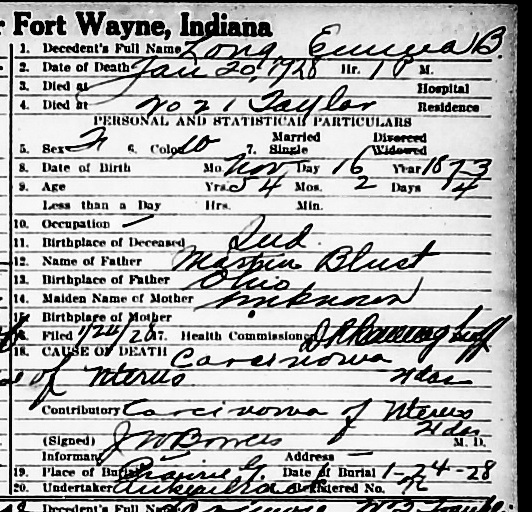 Fort Wayne, Indiana
1. Decedent's Full Name Long, Emma B.
2. Date of Death Jan 20, 1928 Hr. 1 P M.
3. Died at Hospital
4. Died at Taylor Residence
PERSONAL AND STATISTICAL PARTICULARS
Married Divorced
5. Sex F 6. Color W 7. Single Widowed
8. Date of Birth Mo. Nov Day 16 Year 1873
9. Age Yrs. 54 Mos. 2 Days 4
Less than a Day Hrs. Min.
10. Occupation —
11. Birthplace of Deceased Ind.
12. Name of Father Blust
13. Birthplace of Father Ohio
14. Maiden Name of Mother Unknown
15. Birthplace of Mother
16. Filed 1/24/28 17. Health Commissioner
18. CAUSE OF DEATH Carcinoma
of Uterus
Contributory Carcinoma of Uterus
(Signed) J W Bowers M. D.
Informant — Address —
19. Place of Burial Prairie G. Date of Burial 1-24-28
20. Undertaker Registered No.
Decedent's Full Name